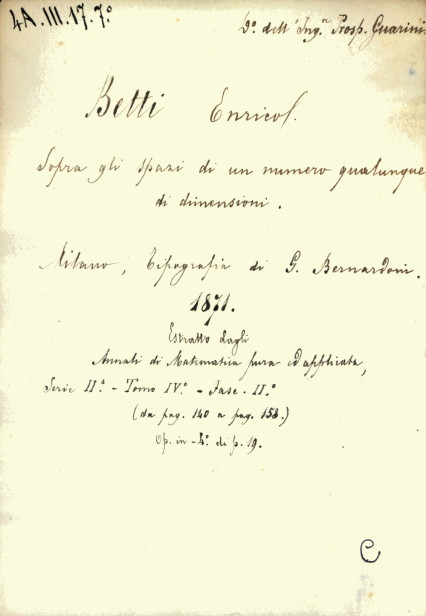 4A.III.17.7º
Dº. dell' Ing.n Prosp. Guarini.
Betti Enrico.
Sopra gli spazi di un numero qualunque
di dimensioni.
Milano, Tipografia di G. Bernardoni.
1871.
Estratto dagli
Annali di Matematica pura ed applicata,
Serie IIª. - Tomo IVº. - Fasc. II.º
(da pag. 140 a pag. 158.)
Op. in - 4º. di p. 19.
C